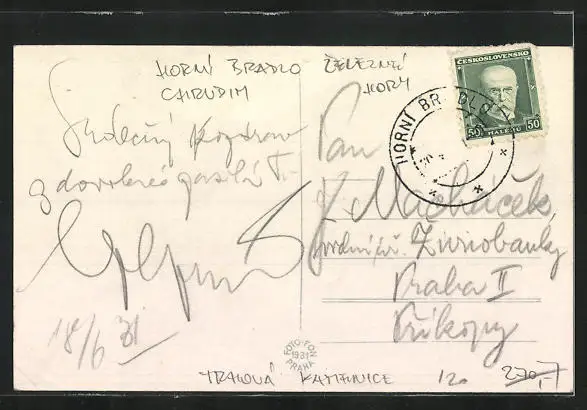 HORNÍ BRADLO
CHRUDIM
ŽELEZNÉ
HORY
ČESKOSLOVENSKO
50 HALÉŘŮ 50
HORNÍ BRADLO
Srdečný pozdrav
z dovolené
18/6 31
Pan
J. Macháček,
Živnobanky
Praha II
Příkopy
FOTO-FON
1931
PRAHA
TRHOVÁ KAMENICE
120
270,-